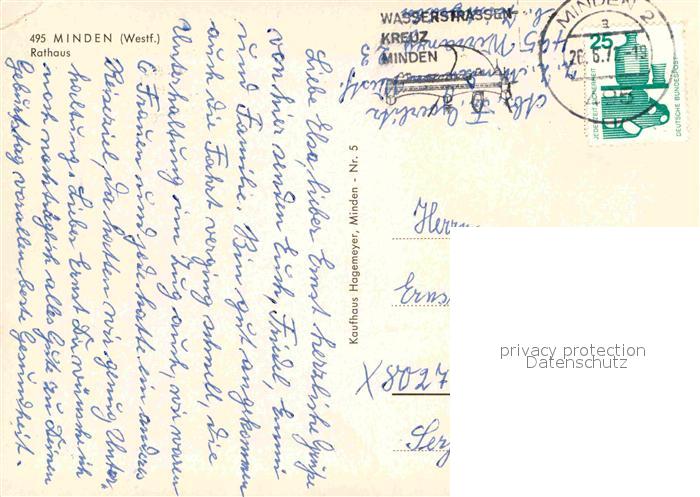 495 MINDEN (Westf.)
Rathaus
WASSERSTRASSEN-
KREUZ
MINDEN
MINDEN 2
a
495
25
JEDERZEIT SICHERHEIT
DEUTSCHE BUNDESPOST
Kaufhaus Hagemeyer, Minden - Nr. 5
Liebe Elsa, lieber Ernst herzliche Grüße
von hier senden Euch, Friedel, Emmi
und Familie. Bin gut angekommen
auch die Fahrt verging schnell, die
Unterhaltung im Zug auch, wir waren
6 Frauen und jede hatte ein anderes
Reiseziel, da hatten wir genug Unter-
haltung. Lieber Ernst Dir wünsche ich
noch nachträglich alles Gute zu Deinen
Geburtstag vor allen beste Gesundheit.
Abs. F.
495 Minden
Herrn
X8027
privacy protection
Datenschutz